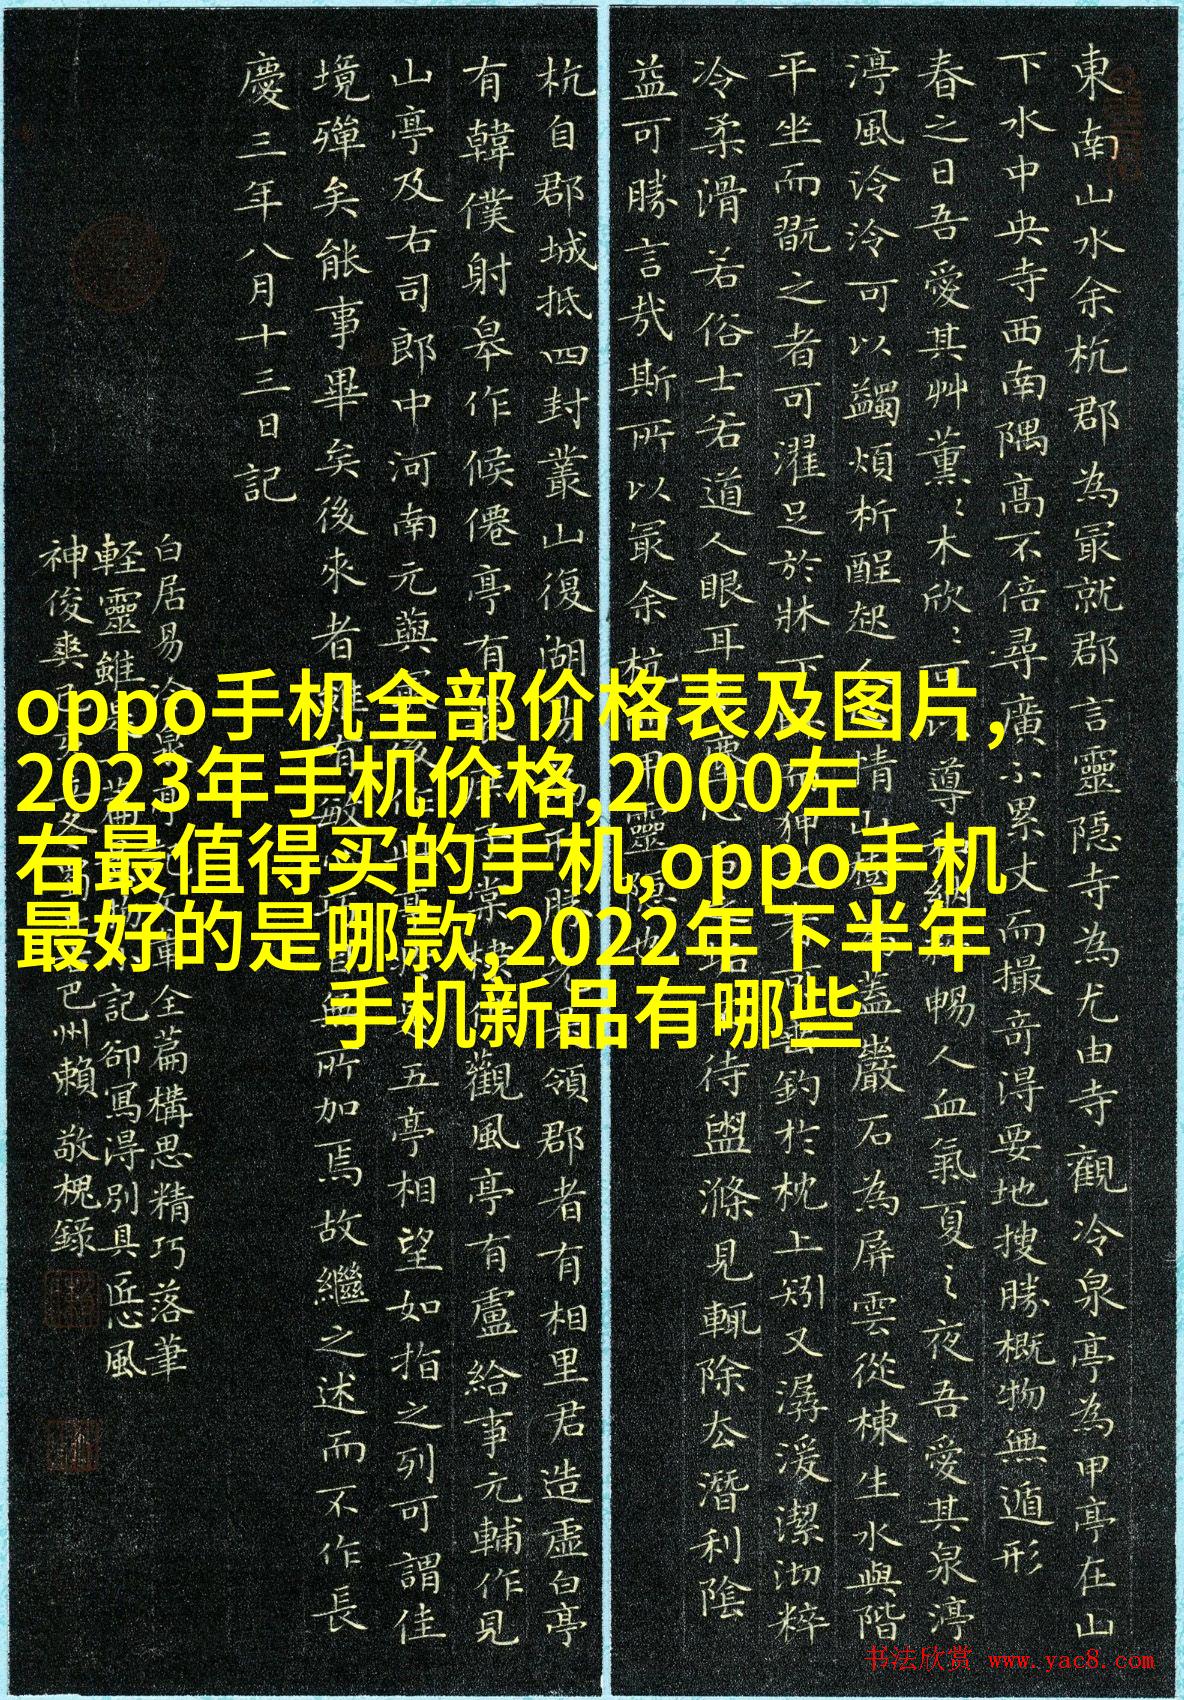 東南山水余杭郡為冣就郡言靈隐寺為尤由寺觀冷泉亭為甲亭在山
下水中央寺西南隅高不倍尋廣不累丈而撮竒淂要地搜勝概物無遁形
春之日吾愛其艸薰〻木欣〻可導暢人血氣夏之夜吾愛其泉渟
渟風泠泠可以蠲煩析酲起情山為蓋巖石為屏雲從棟生水與階
平坐而翫之者可濯足於牀下而狎之釣於枕上矧又潺湲潔沏粹
冷柔滑若俗士若道人眼耳塵心待盥滌見輒除去潛利陰
益可勝言哉斯所以冣余杭甲靈隐也
杭自郡城抵四封叢山復湖易為形勝領郡者有相里君造虛白亭
有韓僕射皋作候僊亭有棠棣作觀風亭有盧給事元輔作見
山亭及右司郎中河南元藇後作五亭相望如指之列可謂佳
境殫矣能事畢矣後來者雖有敏無所加焉故繼之述而不作長
慶三年八月十三日記
白居易冷全篇構思精巧落筆
輕靈雖是記卻寫淂別具匠心風
神俊爽巴州賴敬槐錄
oppo手机全部价格表及图片,
2023年手机价格,2000左
右最值得买的手机,oppo手机
最好的是哪款,2022年下半年
手机新品有哪些
书法欣赏 www.yac8.com